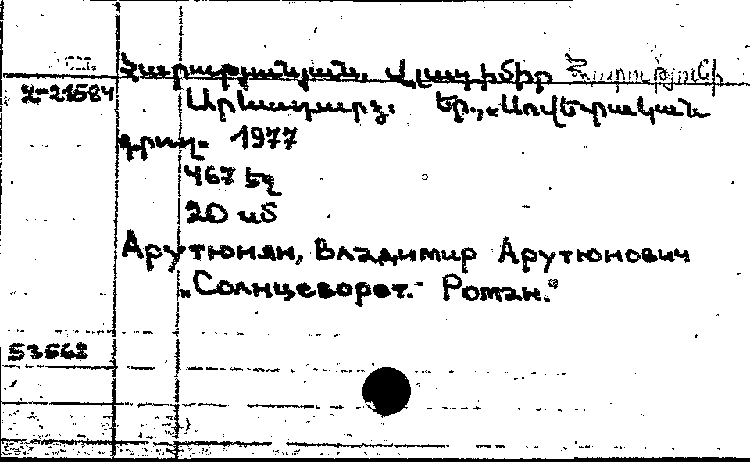 Հարությունյան, Վլադիմիր Հարությունի
Հ-21584 Արևադարձ: Եր., „Սովետական
գրող" 1977
467 էջ
20 սմ
Арутюнян, Владимир Арутюнович
„Солнцеворот." Роман."
53662